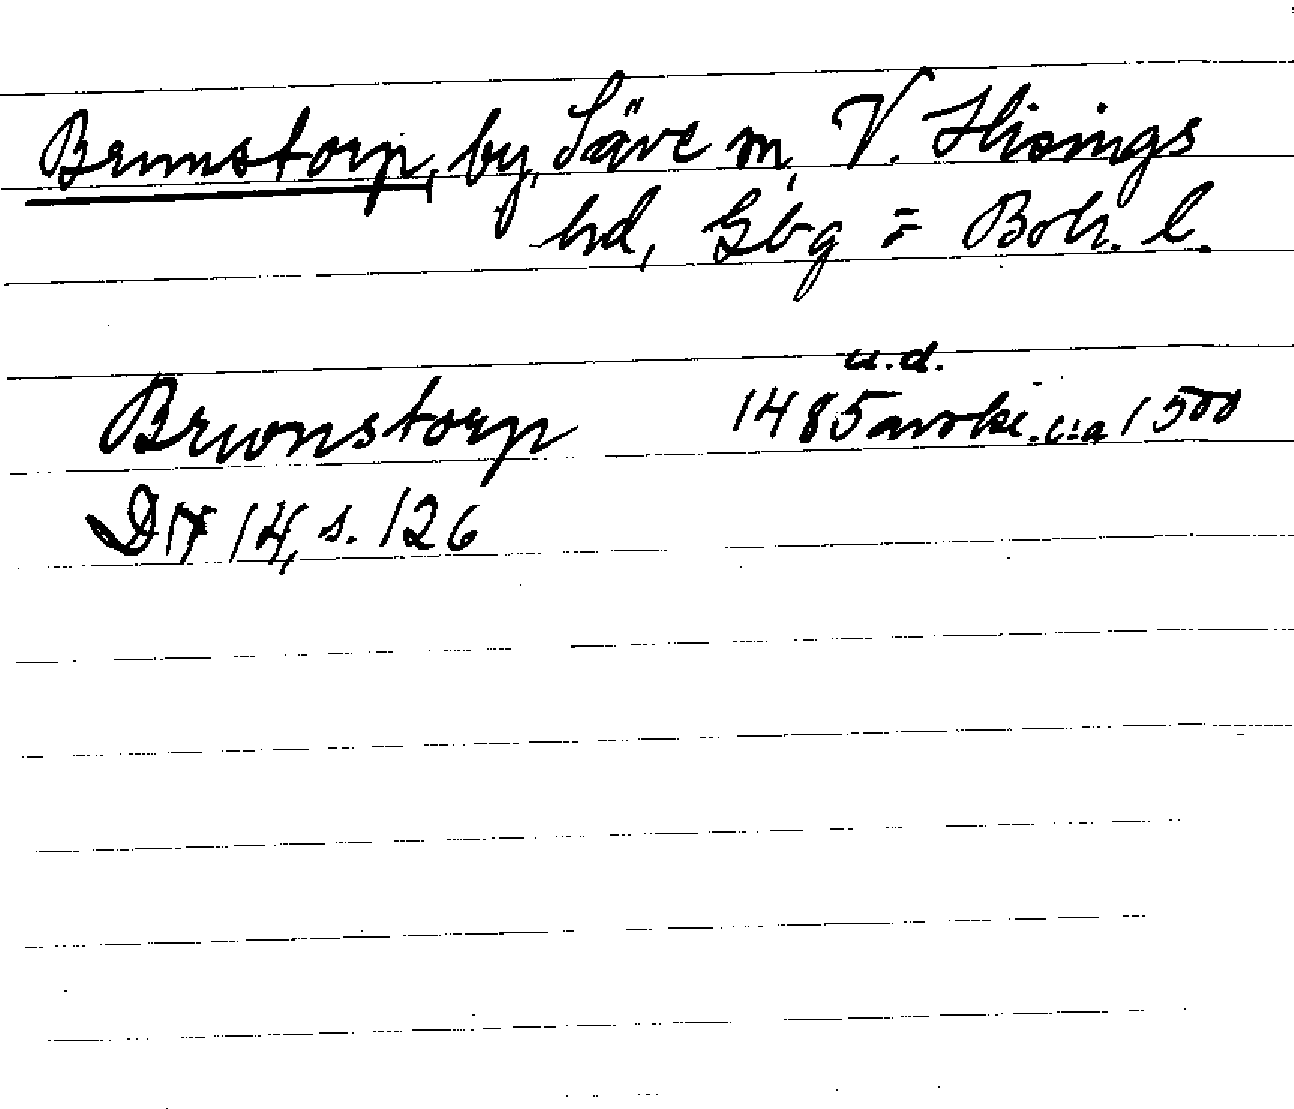 Brunstorp, by, Säve sn, V. Hisings
hd, Gbg = Boh. l.
Brwnstorp 1485 u.d. avskr. ca 1500
DN 14, s. 126